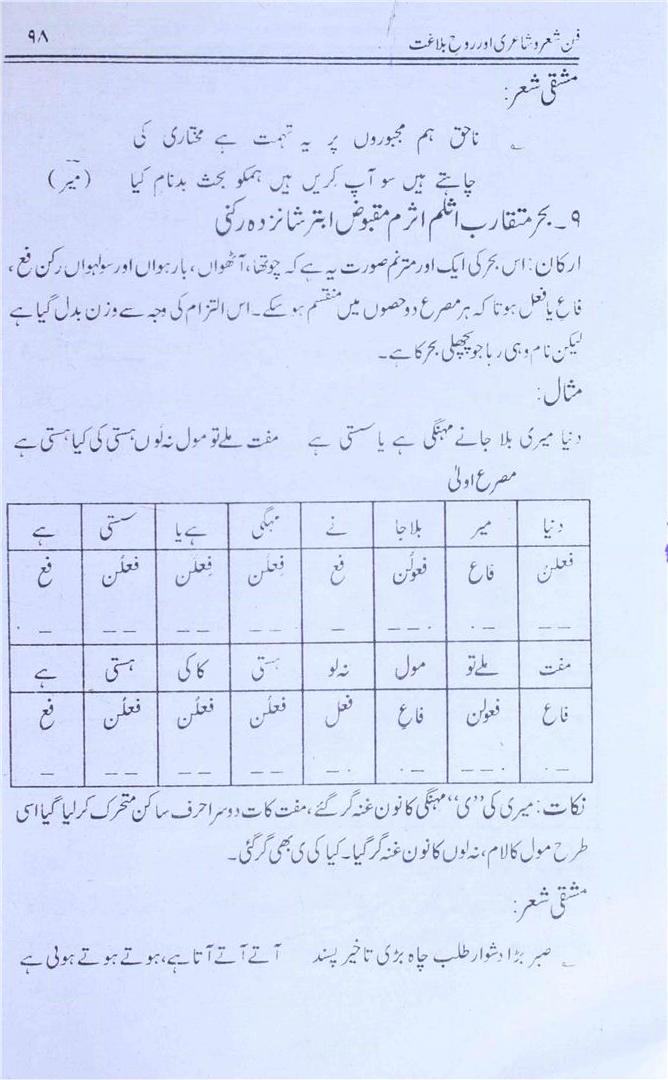 فن شعر و شاعری اور روحِ بلاغت ۹۸
مشقی شعر:
ناحق ہم مجبوروں پر یہ تہمت ہے مختاری کی
چاہتے ہیں سو آپ کریں ہیں ہمکو بحث بدنام کیا (میرؔ)
۹۔ بحر متقارب اثلم اثرم مقبوض ابتر شانزدہ رکنی
ارکان: اس بحر کی ایک اور مترنم صورت یہ ہے کہ چوتھا، آٹھواں، بارہواں اور سولہواں رکن فع،
فاع یا فعل ہوتا کہ ہر مصرع دو حصوں میں منقسم ہو سکے۔ اس التزام کی وجہ سے وزن بدل گیا ہے
لیکن نام وہی رہا جو پچھلی بحر کا ہے۔
مثال:
دنیا میری بلا جانے مہنگی ہے یا سستی ہے مفت ملے تو مول نہ لوں ہستی کی کیا ہستی ہے
مصرع اولیٰ
دنیا میر بلاجا نے مہگی ہے یا سستی ہے
فعلن فاع فعولن فع فعلن فعلن فعلن فع
– – – · – – · – – – – – – – – –  ·
مفت ملے تو مول نہ لو ہستی کا کی ہستی ہے
فاع فعولن فاع فعل فعلن فعلن فعلن فع
– · – – · – · – · – – – – – – –
نکات: میری کی ”ی“ مہنگی کا نون غنہ گر گئے، مفت کا ت دوسرا حرف ساکن متحرک کر لیا گیا اسی
طرح مول کا لام، نہ لوں کا نون غنہ گر گیا۔ کیا کی ی بھی گر گئی۔
مشقی شعر:
صبر بڑا دشوار طلب چاہ بڑی تاخیر پسند آتے آتے آتا ہے، ہوتے ہوتے ہوتی ہے